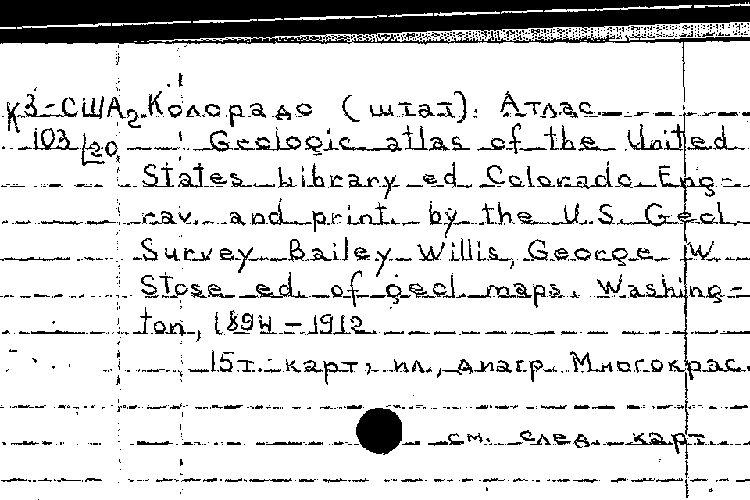 К3-США2 Колорадо (штат). Атлас
103/20 Geologic atlas of the United
States Library ed Colorado. Eng-
rav. and print. by the U.S. Geol
Survey Bailey Willis, George W
Stose ed. of geol maps. Washing-
ton, 1894-1912
15т. карт; ил., диагр. Многокрас.
см. след. карт.